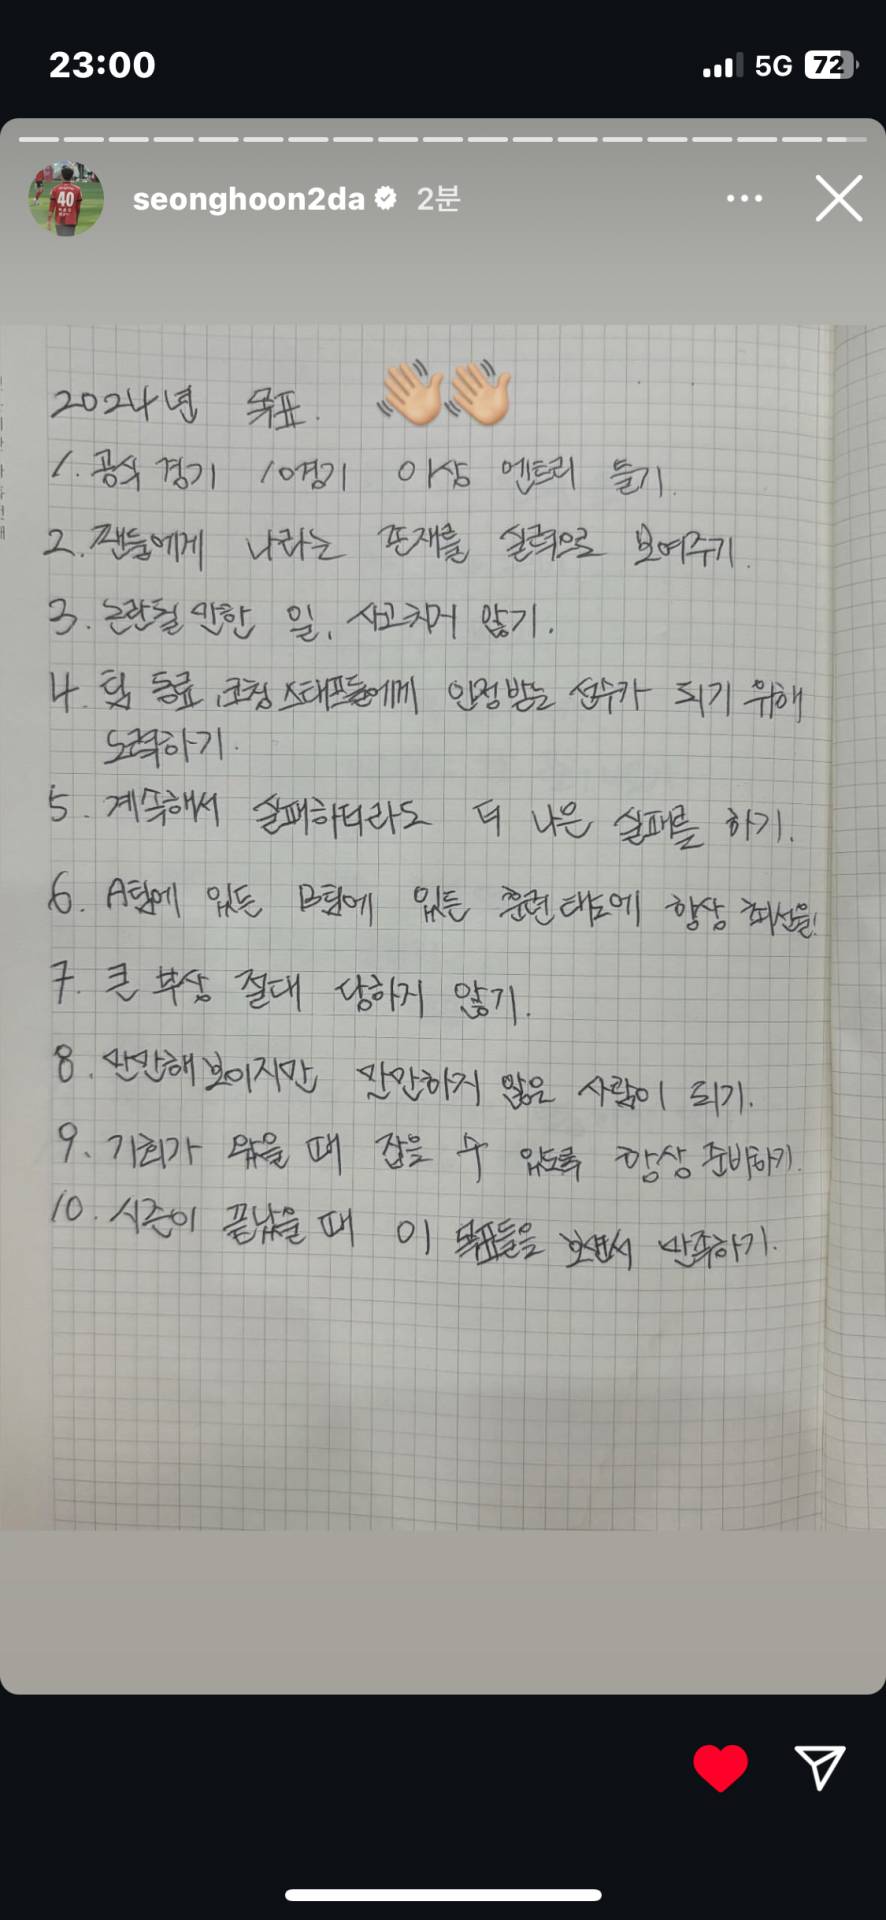 23:00
5G 72
seonghoon2da 2분
40
2024년 목표.
1. 공식 경기 10경기 이상 엔트리 들기.
2. 팬들에게 나라는 존재를 실력으로 보여주기.
3. 논란될 만한 일, 사고치지 않기.
4. 팀 동료, 코칭 스태프들에게 인정받는 선수가 되기 위해
노력하기.
5. 계속해서 실패하더라도 더 나은 실패를 하기.
6. A팀에 있든 B팀에 있든 훈련 태도에 항상 최선을!
7. 큰 부상 절대 당하지 않기.
8. 만만해 보이지만 만만하지 않은 사람이 되기.
9. 기회가 왔을 때 잡을 수 있도록 항상 준비하기.
10. 시즌이 끝났을 때 이 목표들을 보면서 만족하기.